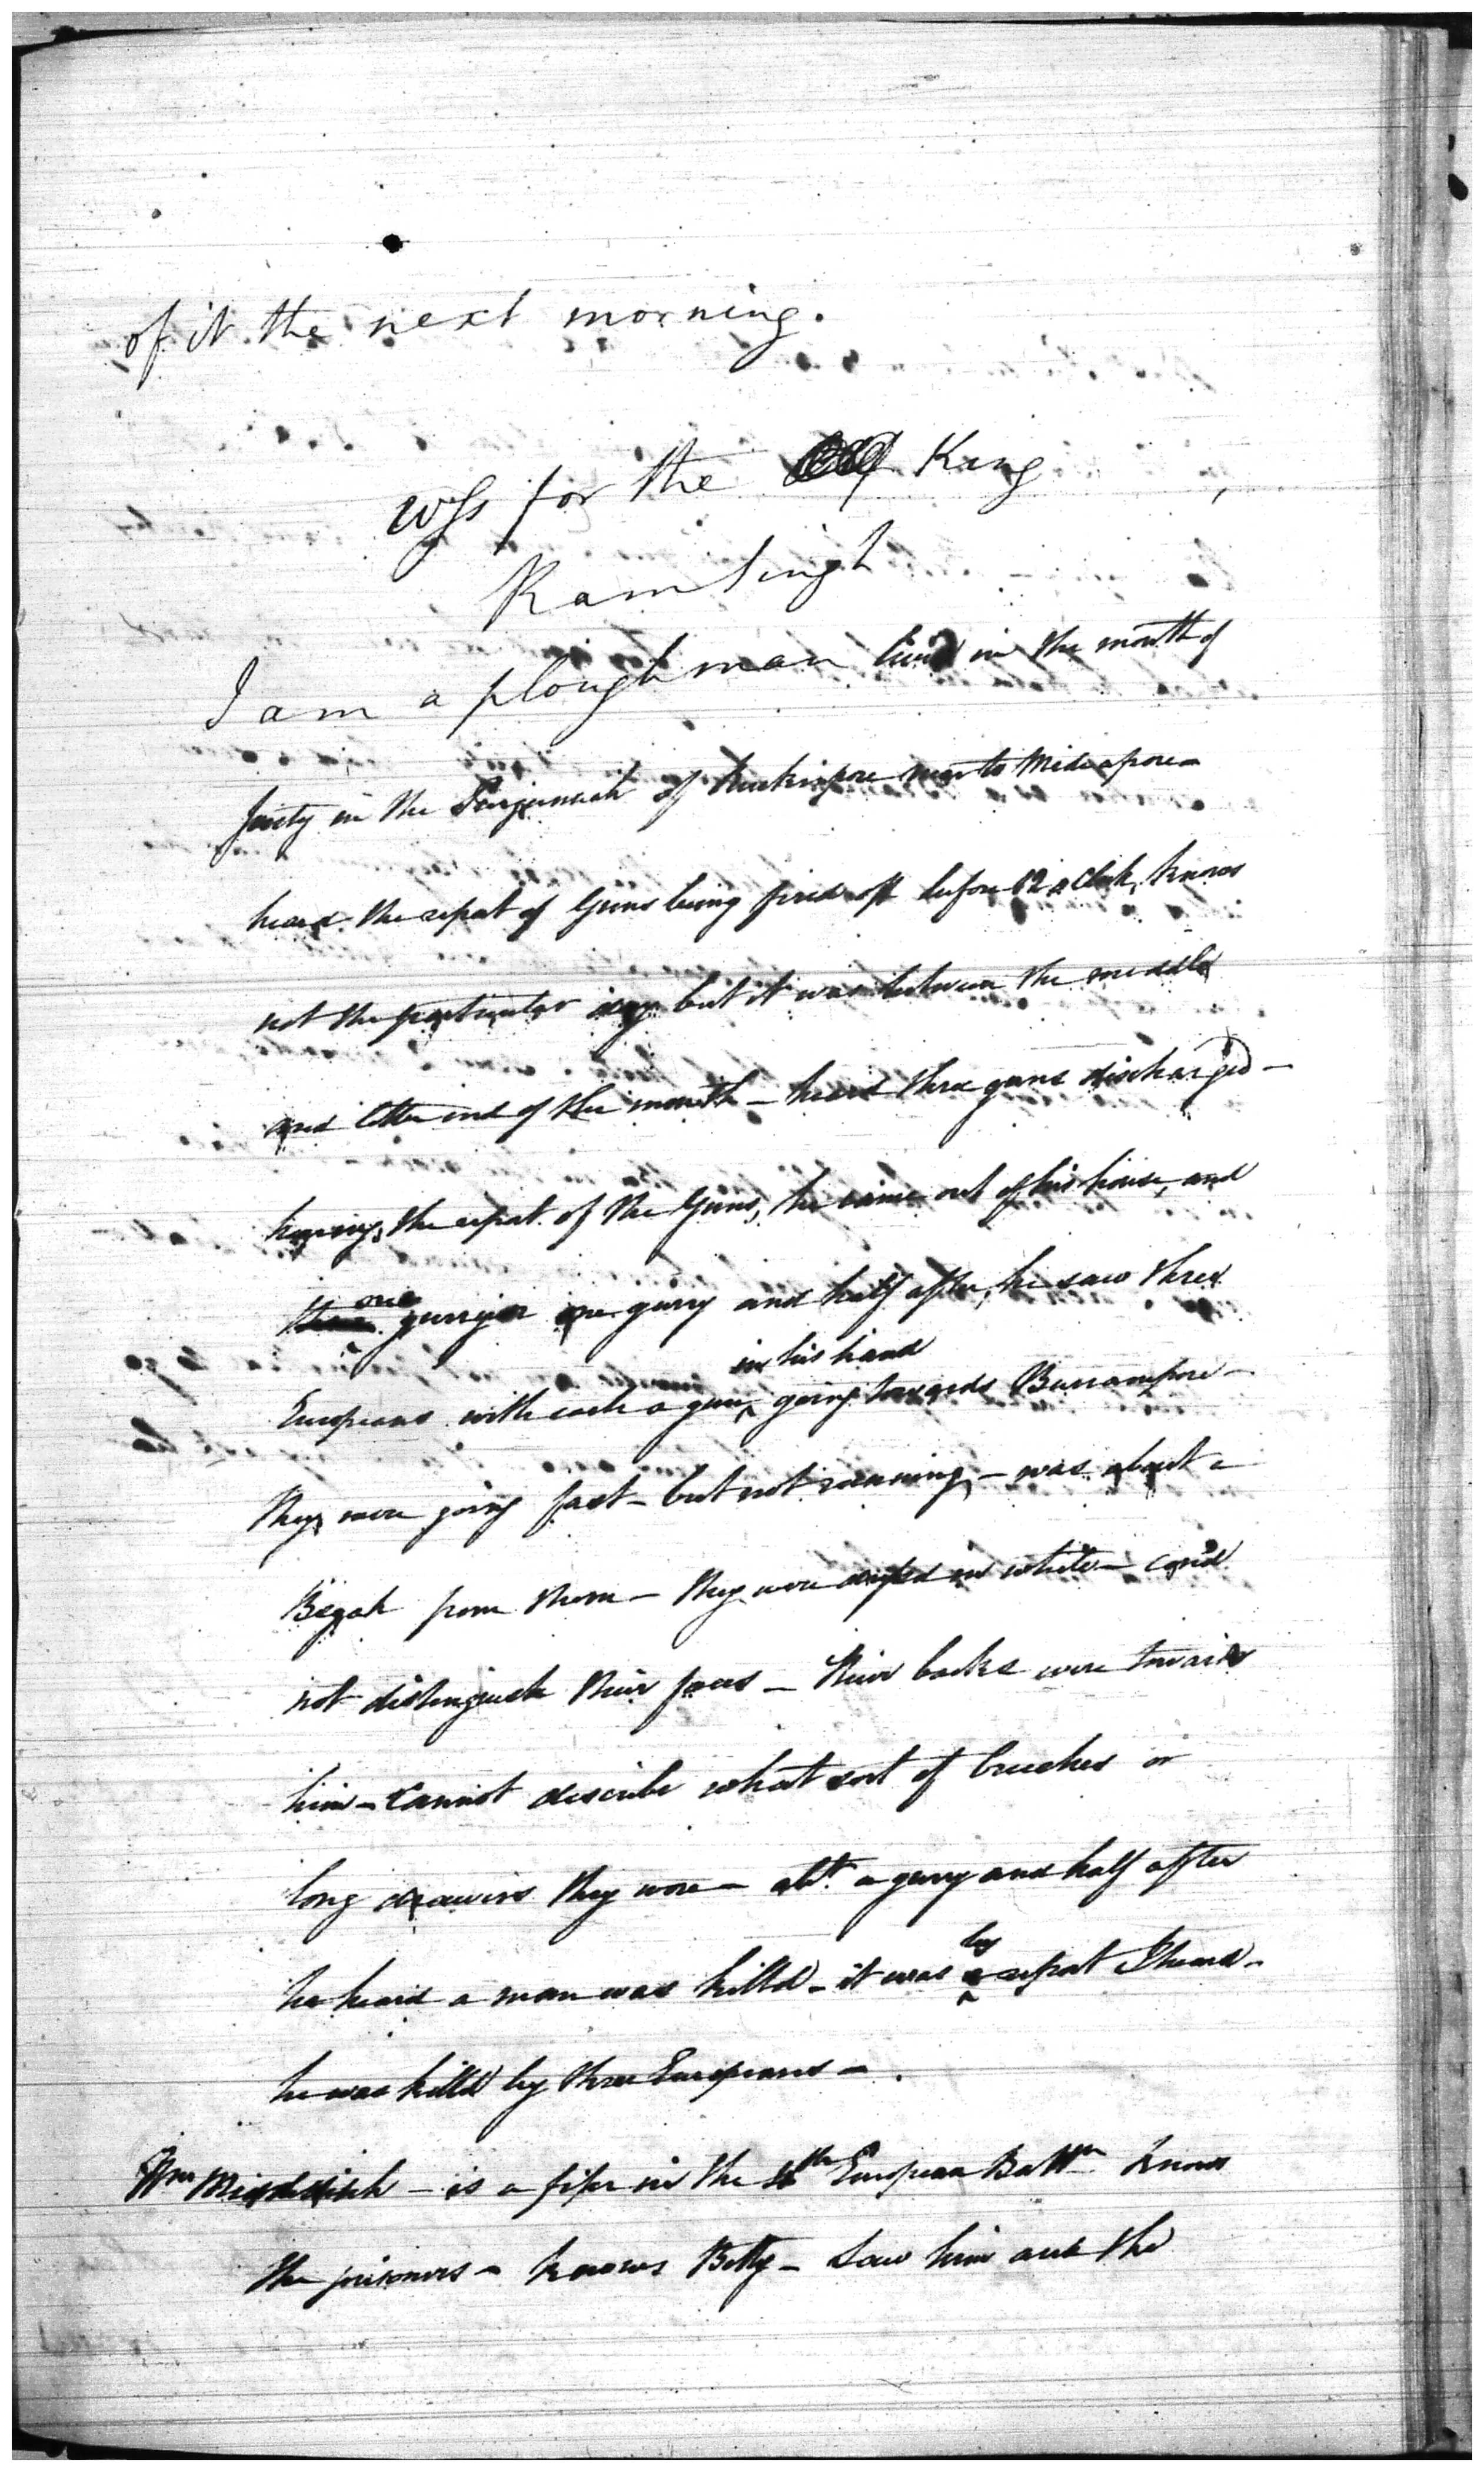 of it the next morning.
wss for the King
Ram Singh
I am a plough man lived in the month of
in the Purgunnah of near to
heard the report of Guns being fired off before 12 o Clock, knows
not the particular day but it was between the middle
and latter end of the month – heard three guns discharged –
hearing the report of the Guns, he came out of his house, and
one gurry or one gurry and half after, he saw three
in his hand
Europeans with each a gun ^ going towards Burrampore –
they were going fast – but not running, – was about a
Begah from them – they were in white – cou'd
not distinguish their faces – their backs were towards
him – Cannot describe what sort of breeches or
long drawers they wore – abt. a gurry and half after
by
he heard a man was killd – it was ^ report I heard –
he was killd by three Europeans –
Wm – is a fifer in the 4th European Battn. knows
the prisoners – knows Betty – Saw him and the